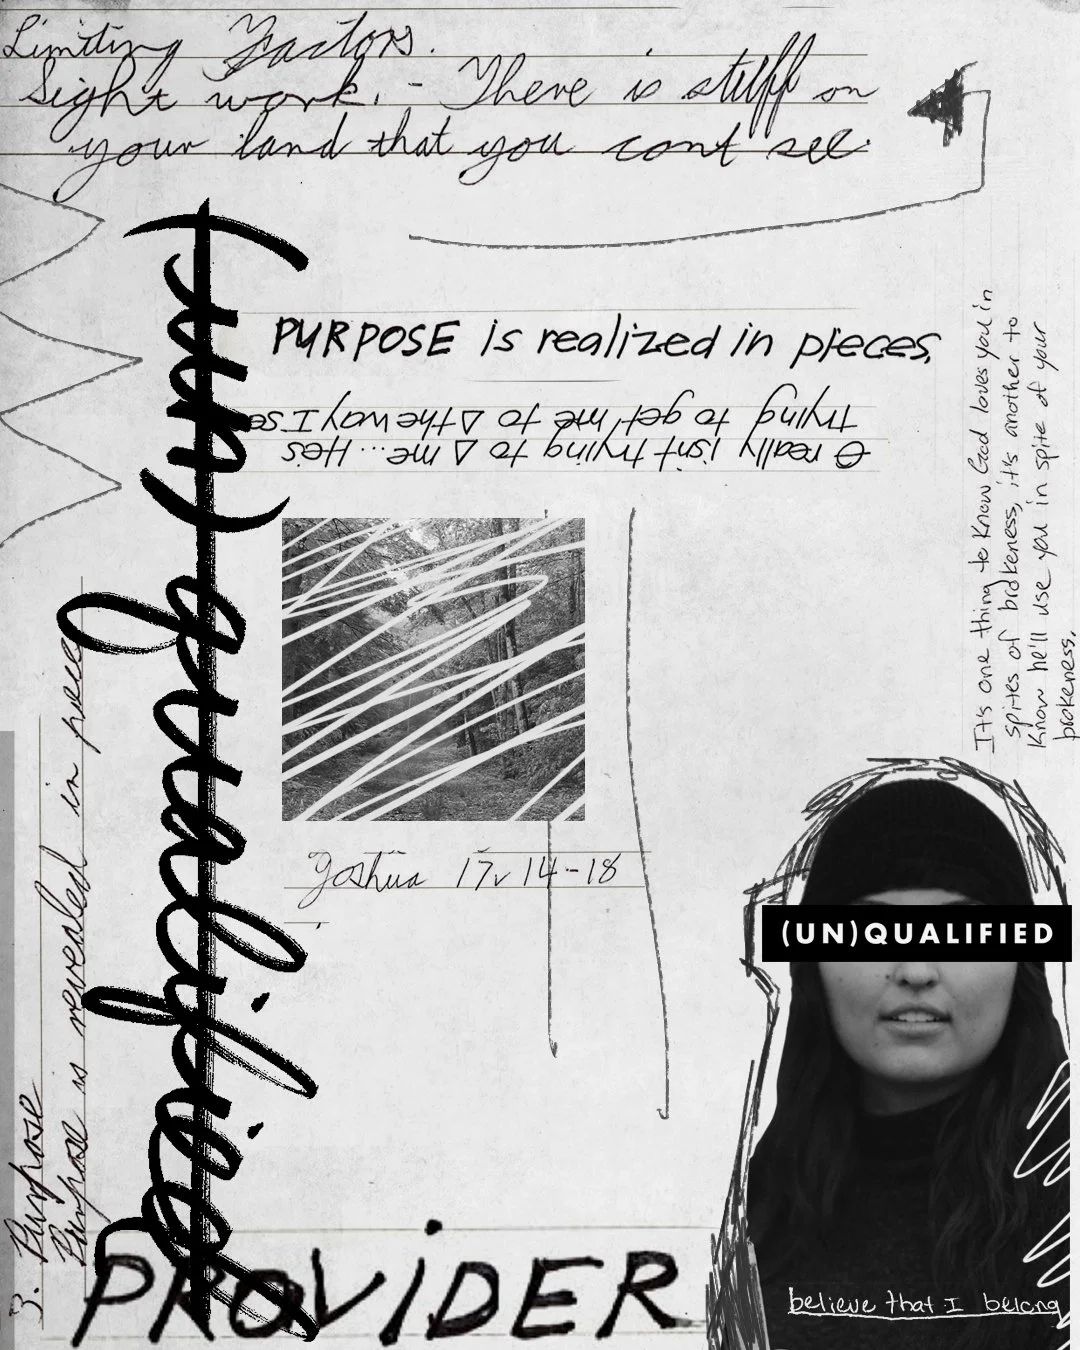 Limiting Factors.
Sight work. - There is stufff on
your land that you cant see.
(un)qualified
PURPOSE is realized in pieces.
Θ really isn't trying to Δ me... He's
trying to get me to Δ the way I se
It's one thing to know God loves you in
spites of brokeness, it's another to
know he'll use you in spite of your
brokeness.
Joshua 17v 14-18
3. Purpose
Purpose is revealed in piece
(UN)QUALIFIED
PROViDER
believe that I belong